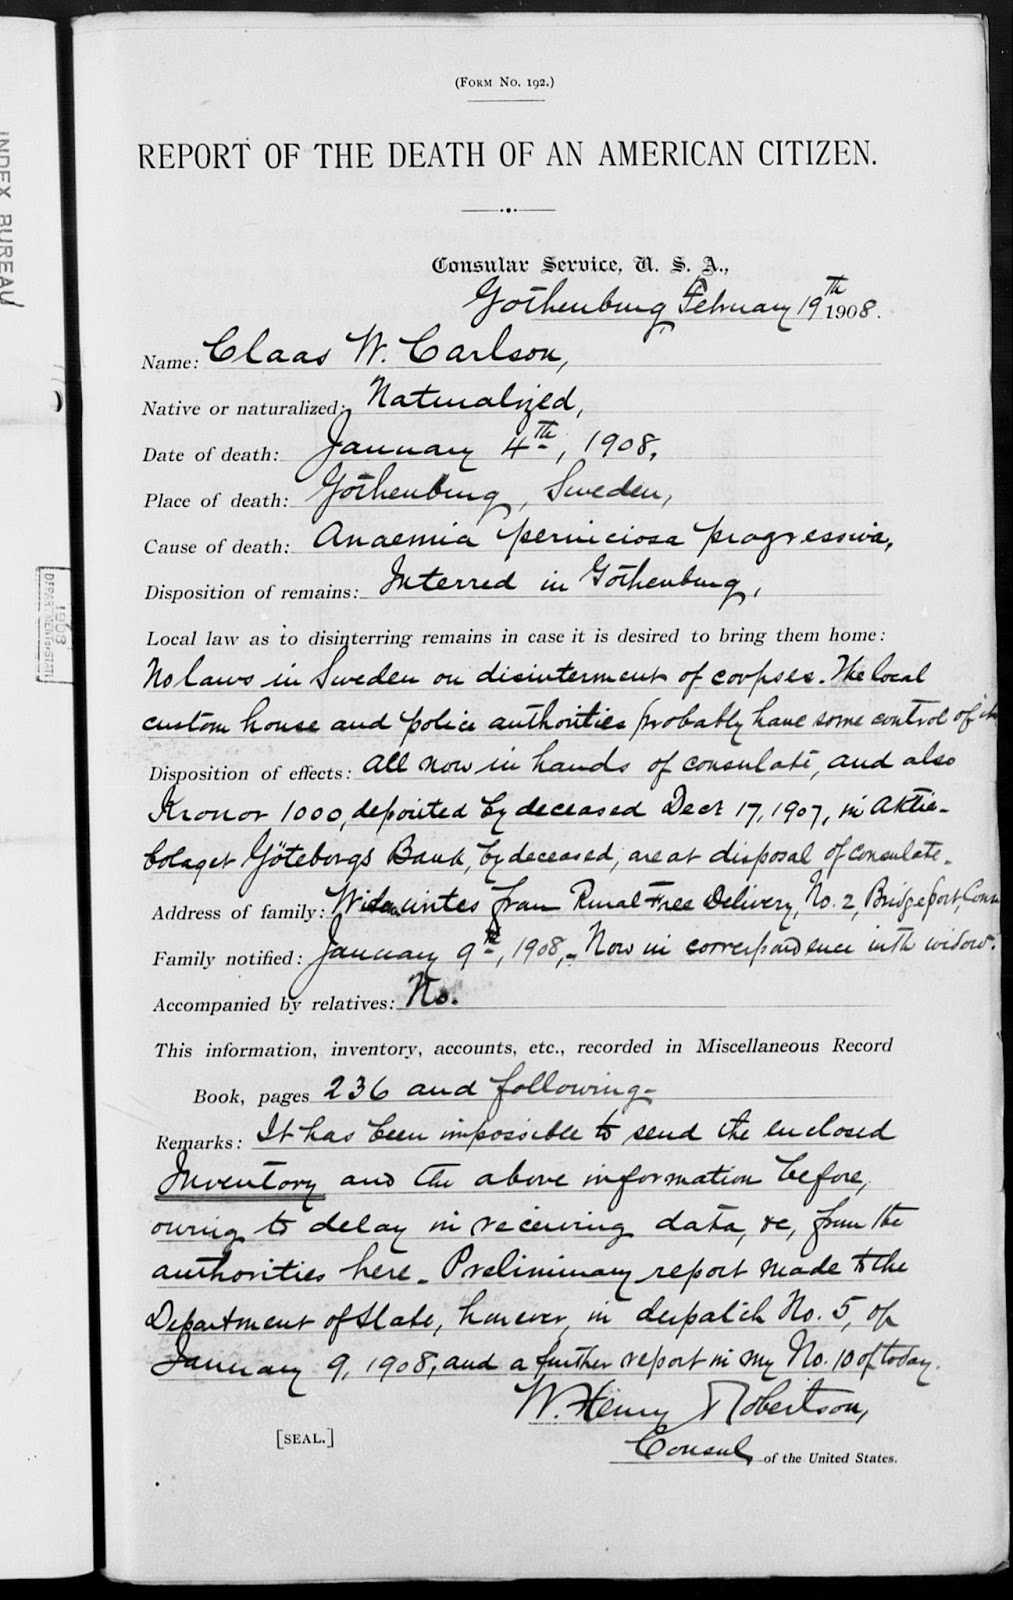 (FORM NO. 192.)
REPORT OF THE DEATH OF AN AMERICAN CITIZEN.
Consular Service, U. S. A.,
Gothenburg, February 19th 1908.
Name: Claas W. Carlson,
Native or naturalized: Naturalized,
Date of death: January 4th, 1908,
Place of death: Gothenburg, Sweden,
Cause of death: Anaemia perniciosa progressiva,
Disposition of remains: Interred in Gothenburg,
Local law as to disinterring remains in case it is desired to bring them home:
No laws in Sweden on disinterment of corpses. The local
custom house and police authorities probably have some control of it
Disposition of effects: All now in hands of consulate, and also
Kronor 1000, deposited by deceased Decr 17, 1907, in Aktie-
bolaget Göteborgs Bank, by deceased, are at disposal of consulate.
Address of family: Widow writes from Rural Free Delivery, No. 2, Bridgeport, Conn
Family notified: January 9th, 1908,- Now in correspondence with widow.
Accompanied by relatives: No.
This information, inventory, accounts, etc., recorded in Miscellaneous Record
Book, pages 236 and following-
Remarks: It has been impossible to send the enclosed
Inventory and the above information before,
owing to delay in receiving data, &c, from the
authorities here. Preliminary report made to the
Department of State, however, in despatch No. 5, of
January 9, 1908, and a further report in my No. 10 of today.
W. Henry Robertson,
[SEAL.]
Consul, of the United States.
INDEX BUREAU
1908
DEPARTMENT OF STATE